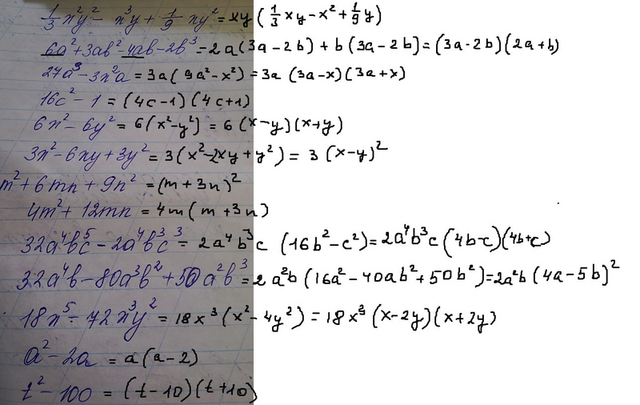 1/3 x²y² - x³y + 1/9 xy² = xy (1/3 xy - x² + 1/9 y)
6a² + 3ab² - 4ab - 2b³ = 2a(3a - 2b) + b(3a - 2b) = (3a - 2b)(2a + b)
27a³ - 3x²a = 3a(9a² - x²) = 3a (3a - x)(3a + x)
16c² - 1 = (4c - 1)(4c + 1)
6x² - 6y² = 6(x² - y²) = 6(x - y)(x + y)
3x² - 6xy + 3y² = 3(x² - 2xy + y²) = 3(x - y)²
m² + 6mn + 9n² = (m + 3n)²
4m² + 12mn = 4m(m + 3n)
32a⁴b⁵c - 2a⁴b³c³ = 2a⁴b³c (16b² - c²) = 2a⁴b³c (4b - c)(4b + c)
32a⁴b - 80a³b² + 50a²b³ = 2a²b (16a² - 40ab² + 50b²) = 2a²b (4a - 5b)²
18x⁵ - 72x³y² = 18x³(x² - 4y²) = 18x³(x - 2y)(x + 2y)
a² - 2a = a(a - 2)
t² - 100 = (t - 10)(t + 10)